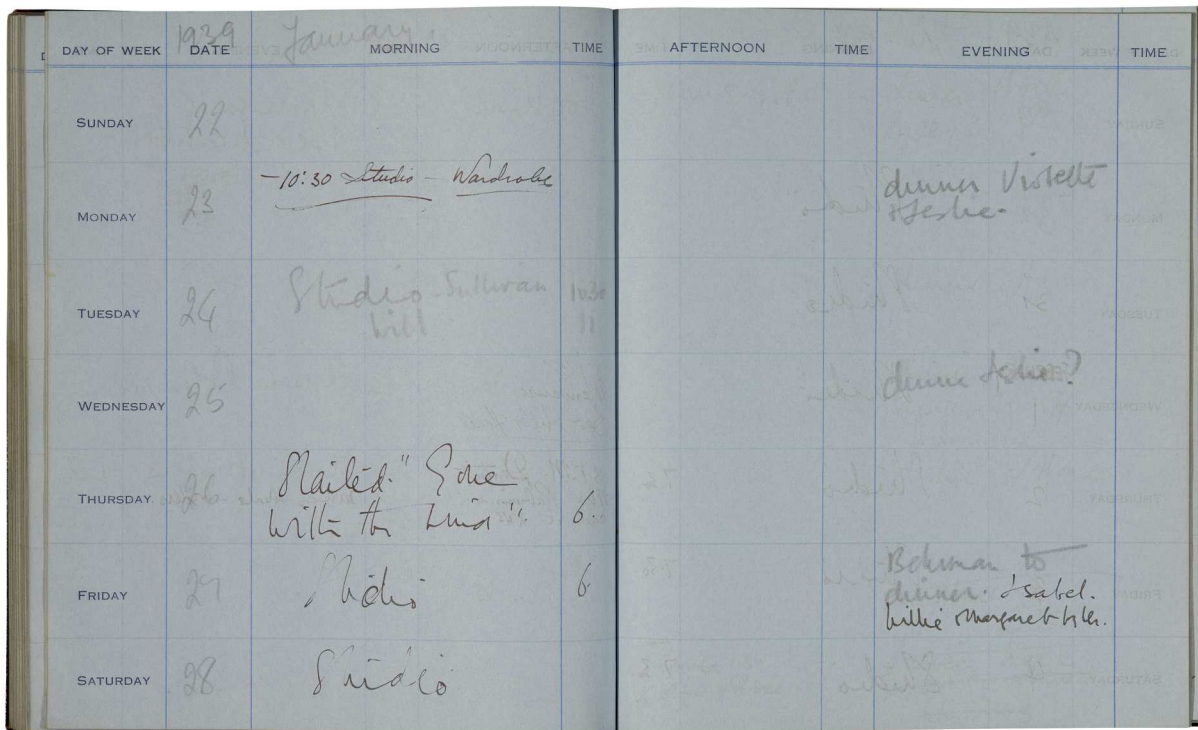 1939 January.
DAY OF WEEK DATE MORNING TIME AFTERNOON TIME EVENING TIME
SUNDAY 22
MONDAY 23 -10:30 Studio - Wardrobe dinner Violette
& Leslie.
TUESDAY 24 Studio - Sullivan 10.30
Will 11
WEDNESDAY 25 dinner Leslie?
THURSDAY 26 Started "Gone
With the Wind" 6.
FRIDAY 27 Studio 6 Behrman to
dinner. Isabel.
Willie Margaret
SATURDAY 28 Studio